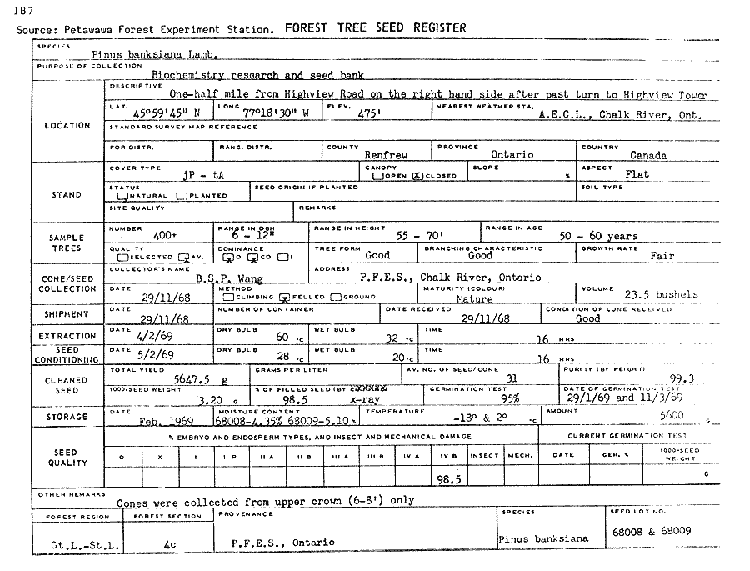 187
Source: Petawawa Forest Experiment Station. FOREST TREE SEED REGISTER
SPECIES
Pinus banksiana Lamb.
PURPOSE OF COLLECTION
Biochemistry research and seed bank
LOCATION
DESCRIPTIVE
One-half mile from Highview Road on the right hand side after past turn to Highview Tower
LAT. 45°59'45" N LONG. 77°18'30" W ELEV. 475' NEAREST WEATHER STA. A.E.C.L., Chalk River, Ont.
STANDARD SURVEY MAP REFERENCE
FOR DISTR. RANG. DISTR. COUNTY Renfrew PROVINCE Ontario COUNTRY Canada
STAND
COVER TYPE jP - tA CANOPY OPEN CLOSED SLOPE % ASPECT Flat
STATUS NATURAL PLANTED SEED ORIGIN IF PLANTED SOIL TYPE
SITE QUALITY REMARKS
SAMPLE TREES
NUMBER 400+ RANGE IN DBH 6 - 12" RANGE IN HEIGHT 55 - 70' RANGE IN AGE 50 - 60 years
QUALITY SELECTED AV. DOMINANCE D CO I TREE FORM Good BRANCHING CHARACTERISTIC Good GROWTH RATE Fair
CONE/SEED COLLECTION
COLLECTOR'S NAME B.S.P. Wang ADDRESS P.F.E.S., Chalk River, Ontario
DATE 29/11/68 METHOD CLIMBING FELLED GROUND MATURITY (COLOUR) Mature VOLUME 23.5 bushels
SHIPMENT
DATE 29/11/68 NUMBER OF CONTAINER DATE RECEIVED 29/11/68 CONDITION OF CONE RECEIVED Good
EXTRACTION
DATE 4/2/69 DRY BULB 60 °C WET BULB 32 °C TIME 16 HRS
SEED CONDITIONING
DATE 5/2/69 DRY BULB 28 °C WET BULB 20 °C TIME 16 HRS
CLEANED SEED
TOTAL YIELD 5647.5 g GRAMS PER LITER AV. NO. OF SEED/CONE 31 PURITY (BY WEIGHT) 99.3
1000-SEED WEIGHT 3.20 % OF FILLED SEED (BY 98.5 X-ray GERMINATION TEST 95% DATE OF GERMINATION TEST 29/1/69 and 11/3/69
STORAGE
DATE Feb. 1969 MOISTURE CONTENT 68008-4.35% 68009-5.10% TEMPERATURE -13° & 2° °C AMOUNT 5600
SEED QUALITY
% EMBRYO AND ENDOSPERM TYPES, AND INSECT AND MECHANICAL DAMAGE CURRENT GERMINATION TEST
II A II B III A III B IV A IV B INSECT MECH. DATE GER. % 1000-SEED WEIGHT
98.5
OTHER REMARKS
Cones were collected from upper crown (6-8') only
FOREST REGION FOREST SECTION PROVENANCE SPECIES SEED LOT NO.
St.L.-St.L. 4c P.F.E.S., Ontario Pinus banksiana 68008 & 68009